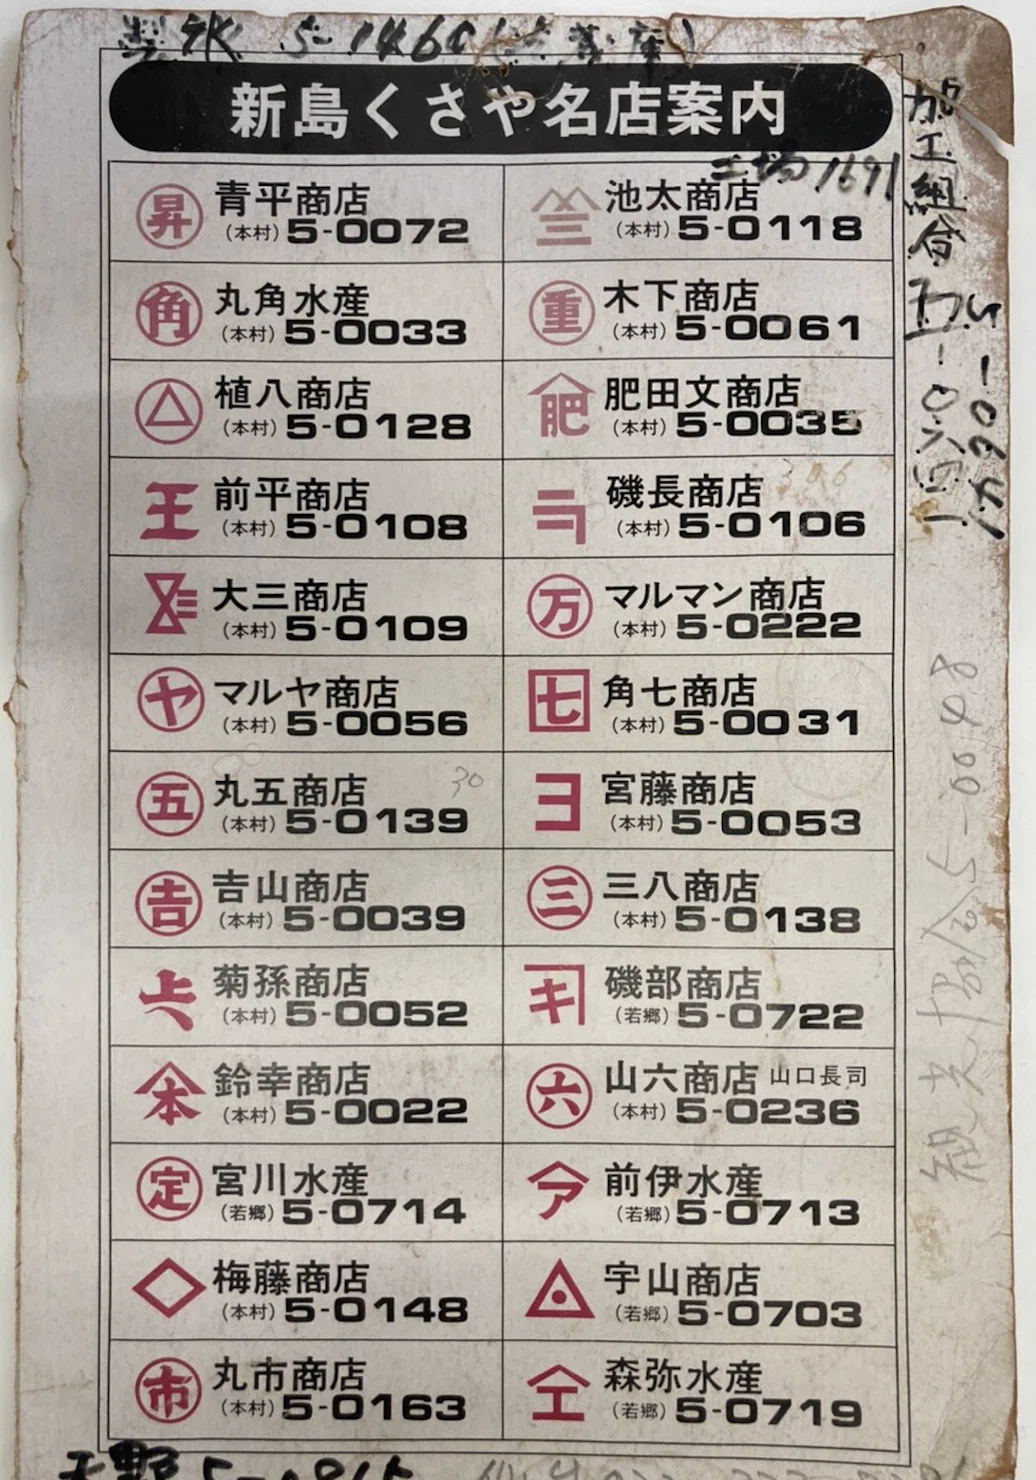 製氷 5-1460
新島くさや名店案内
工場1691
昇 青平商店
(本村) 5-0072
池太商店
(本村) 5-0118
角 丸角水産
(本村) 5-0033
重 木下商店
(本村) 5-0061
植八商店
(本村) 5-0128
肥 肥田文商店
(本村) 5-0035
王 前平商店
(本村) 5-0108
磯長商店
(本村) 5-0106
大三商店
(本村) 5-0109
万 マルマン商店
(本村) 5-0222
ヤ マルヤ商店
(本村) 5-0056
七 角七商店
(本村) 5-0031
五 丸五商店
(本村) 5-0139
30
ヨ 宮藤商店
(本村) 5-0053
吉 吉山商店
(本村) 5-0039
三 三八商店
(本村) 5-0138
菊孫商店
(本村) 5-0052
キ 磯部商店
(若郷) 5-0722
本 鈴幸商店
(本村) 5-0022
六 山六商店 山口長司
(本村) 5-0236
定 宮川水産
(若郷) 5-0714
ア 前伊水産
(若郷) 5-0713
梅藤商店
(本村) 5-0148
宇山商店
(若郷) 5-0703
市 丸市商店
(本村) 5-0163
森弥水産
(若郷) 5-0719
加工組合
五-〇六四一
観光協会 5-0048